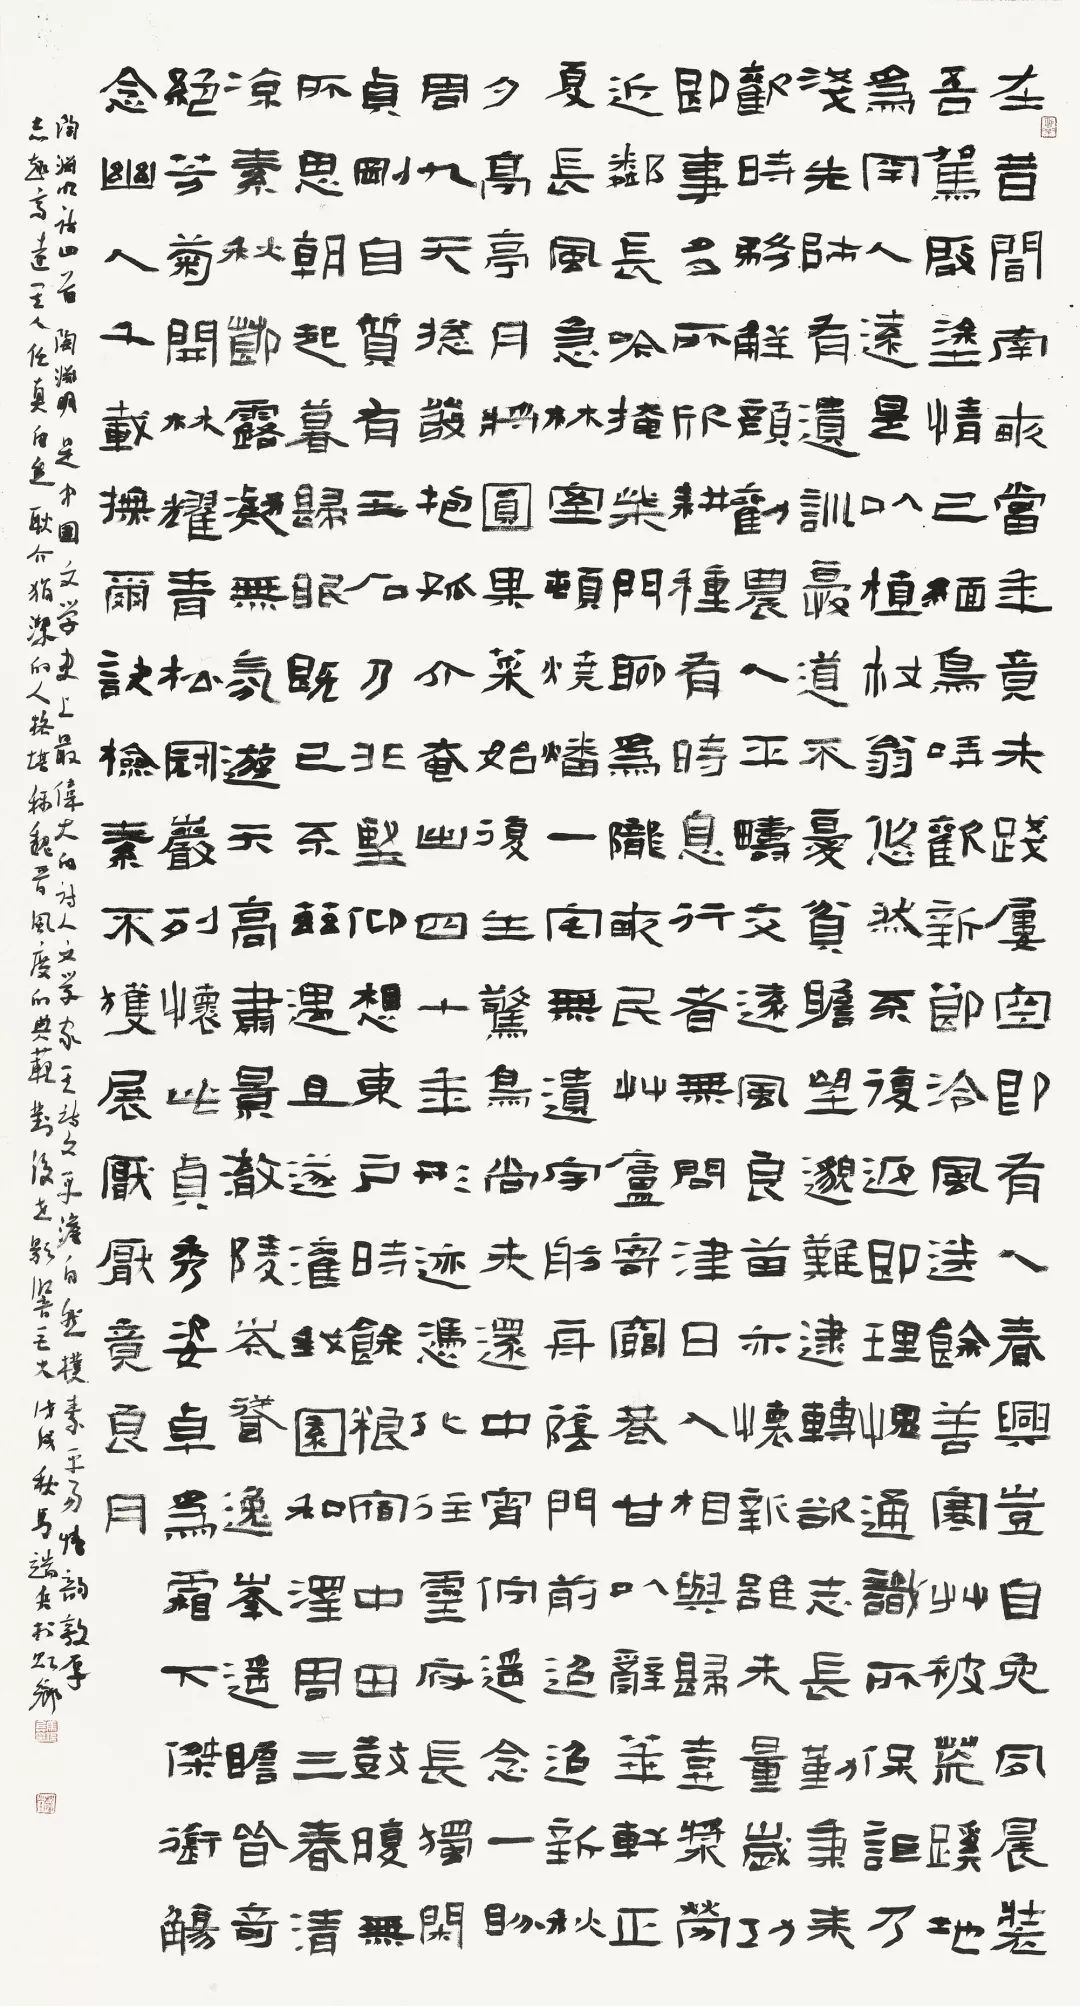 在昔間南畝當年竟未踐屢空即有人春興豈自免夙晨裝
吾駕啟塗情已緬鳥哢歡新節泠風送餘善寒艸被荒蹊地
為罔人遠是以植杖翁悠然不復返即理愧通識所保詎乃
淺先師有遺訓憂道不憂貧瞻望邈難逮轉欲志長勤秉耒
歡時務解顏勸農人平疇交遠風良苗亦懷新雖未量歲功
即事多所欣耕種有時息行者無問津日入相與歸壺漿勞
近鄰長吟掩柴門聊為隴畝民艸廬寄窮巷甘以辭華軒正
夏長風急林室頓燒燔一宅無遺宇舫舟蔭門前迢迢新秋
夕亭亭月將圓果菜始復生驚鳥尚未還中宵佇遙念一盼
周九天總髮抱孤介奄出四十年形迹憑化往靈府長獨閑
貞剛自質有玉石乃非堅仰想東戶時餘糧宿中田鼓腹無
所思朝起暮歸眠既已不茲遇且遂灌我園和澤周三春清
涼素秋節露凝無氛遊天高肅景澈陵岑聳逸峯遙瞻皆奇
絕芳菊開林耀青松冠巖列懷此貞秀姿卓為霜下傑銜觴
念幽人千載撫爾訣檢素不獲展厭厭竟良月
陶淵明詩四首 陶淵明是中國文學史上最偉大的詩人文學家其詩文平澹自然樸素平易情韵敦厚
志趣高遠其人任真自耿介狷潔的人格堪稱魏晉風度的典範對後世影響巨大戊戌秋馬端兵於鄉